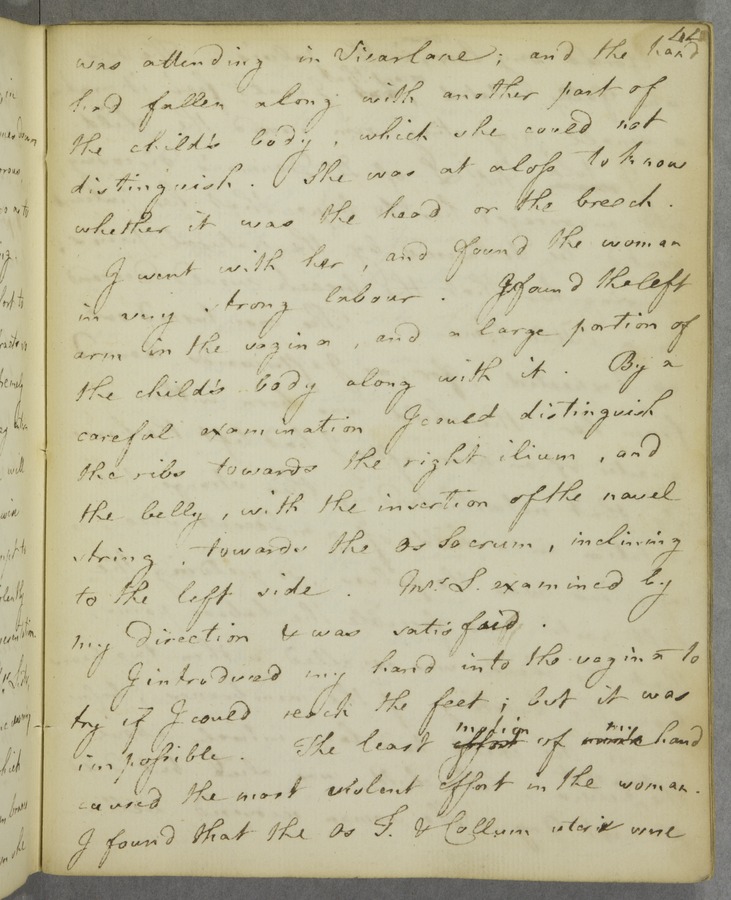 44
was attending in Vicarlane; and the hand
had fallen along with another part of
the child's body, which she could not
distinguish. She was at a loss to know
whether it was the head or the breech.
I went with her, and found the woman
in very strong labour. I found the left
arm in the vagina, and a large portion of
the child's body along with it. By a
careful examination I could distinguish
the ribs towards the right ilium, and
the belly, with the insertion of the navel
string, towards the os sacrum, inclining
to the left side. Mrs S. examined by
my direction & was satisfied.
I introduced my hand into the vagina to
try if I could reach the feet; but it was
impossible. The least motion of my hand
caused the most violent effort in the woman.
I found that the os T. & Collum uteri were